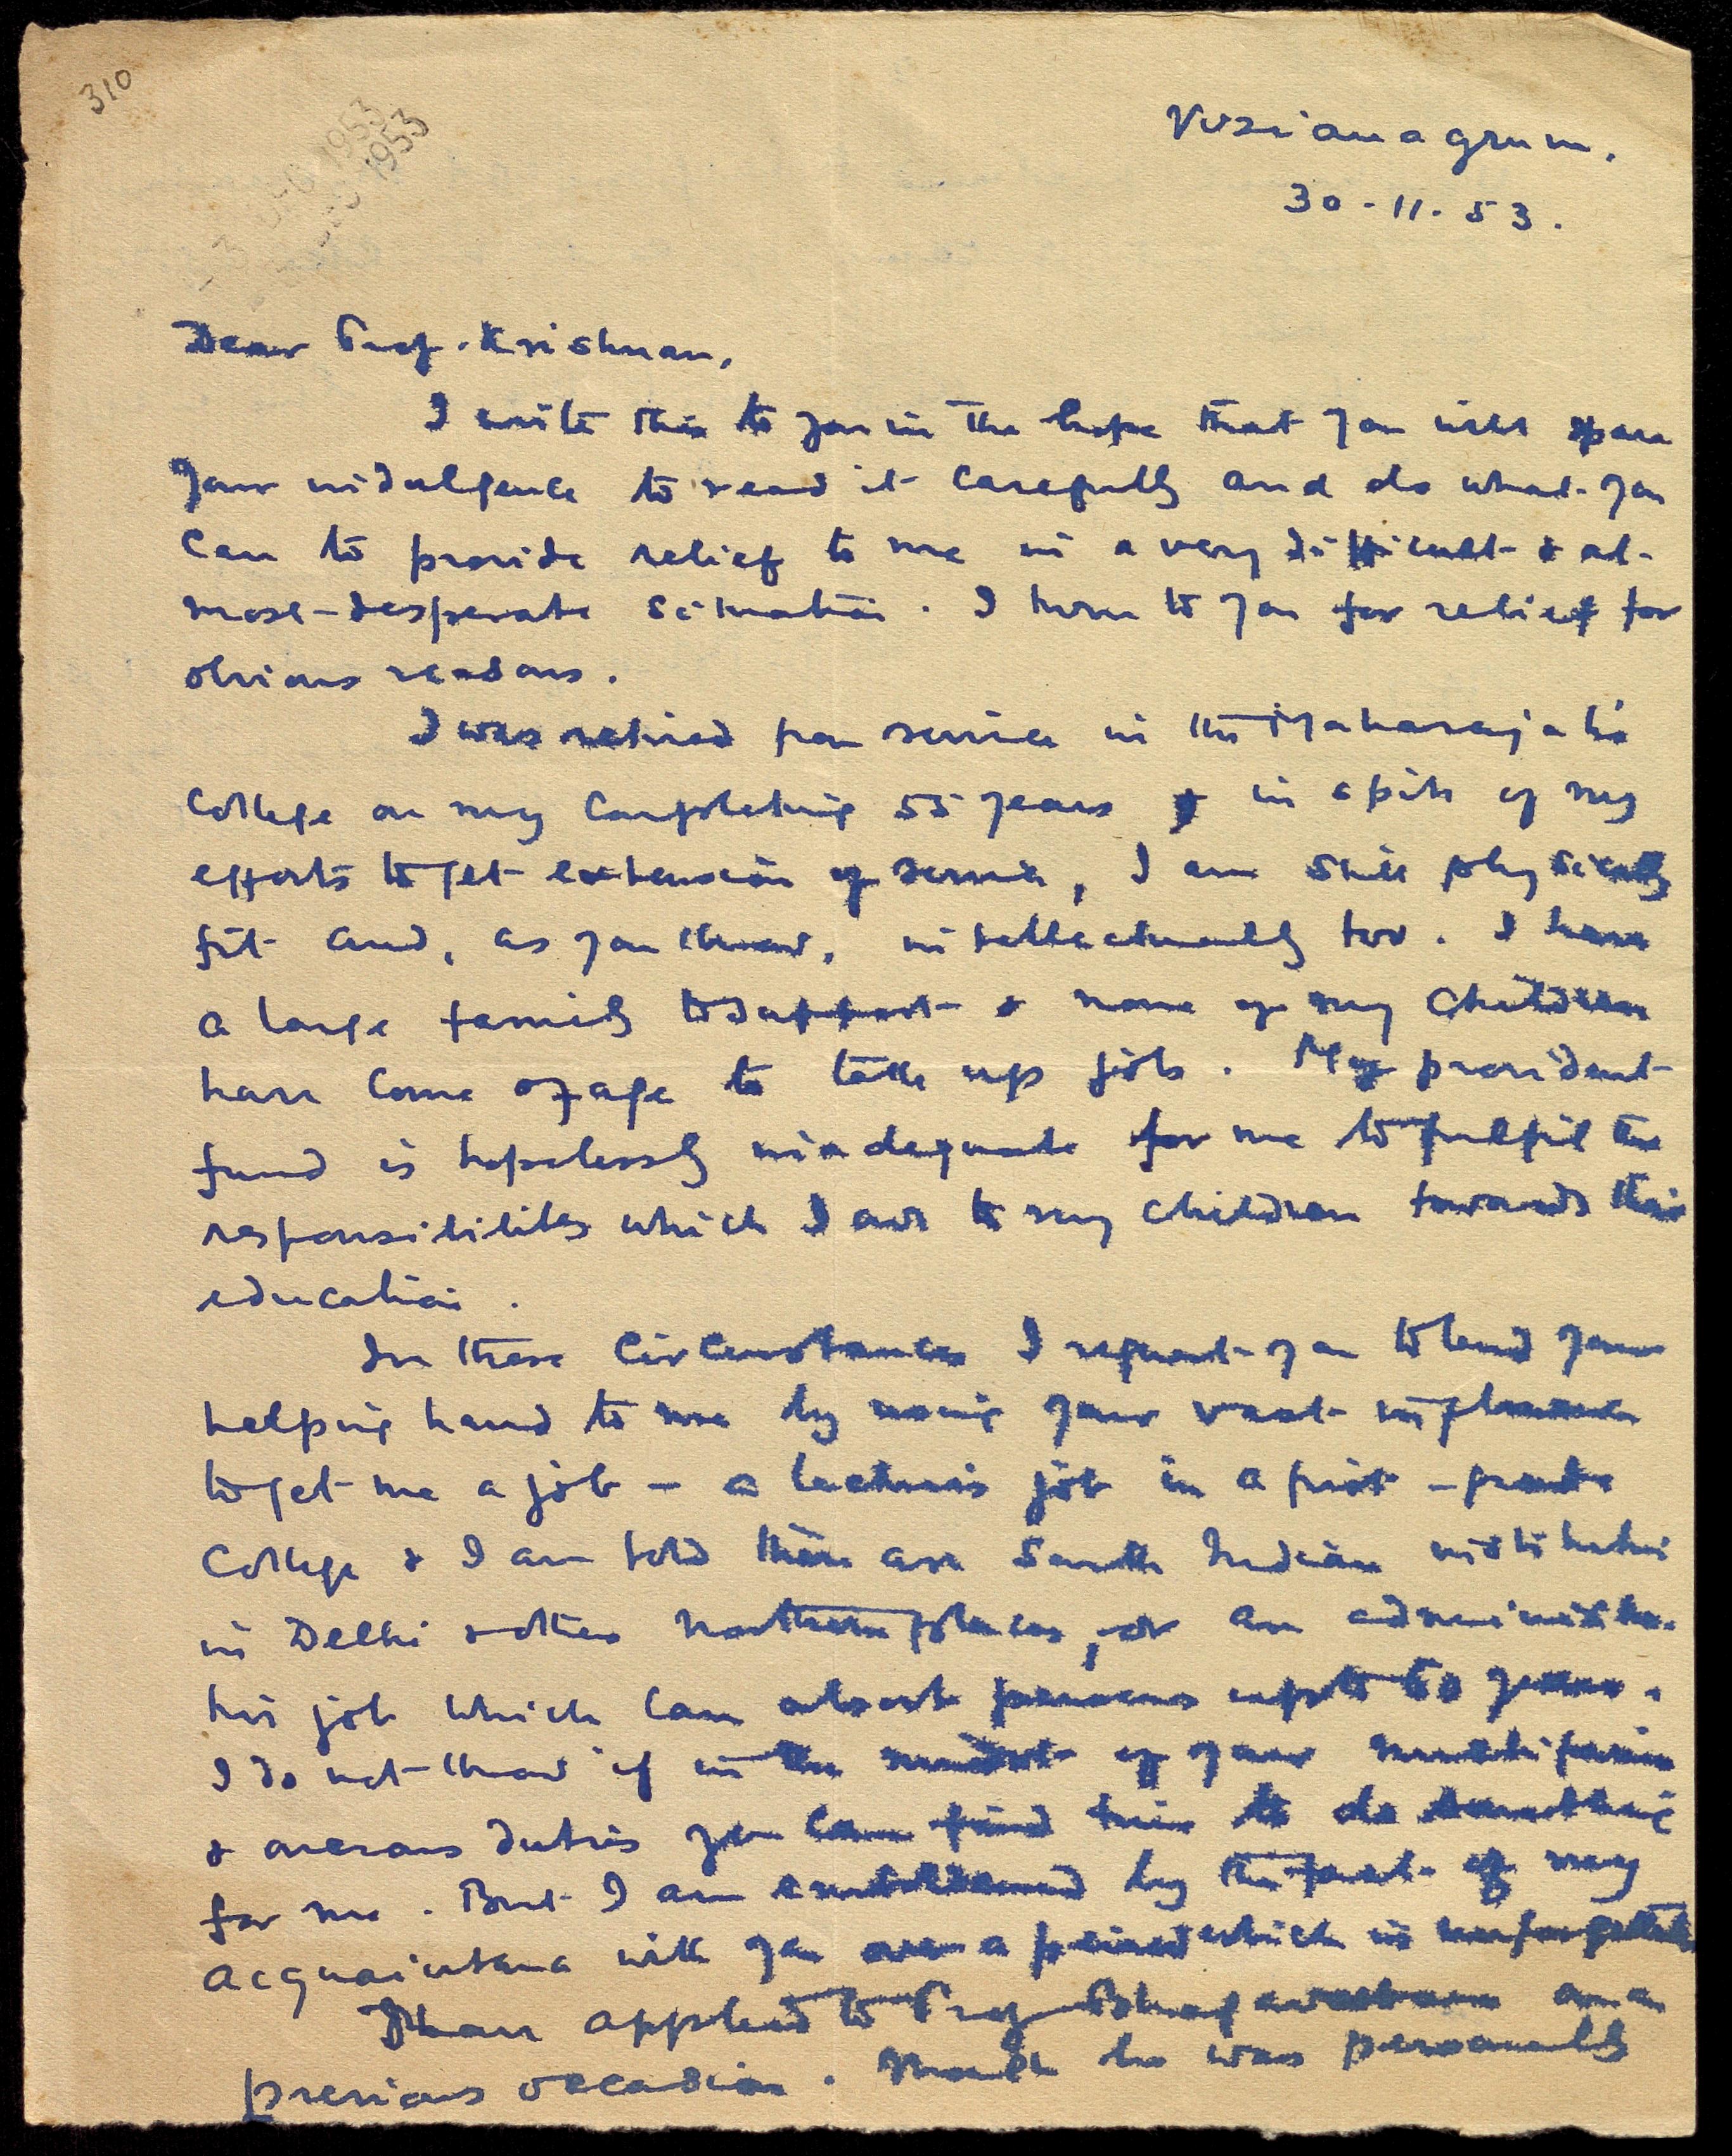 310
1953
1953
Vizianagrum.
30-11.53.
Dear Prof. Krishnan,
I write this to you in the hope that you will spare
your indulgence to read it carefully and do what you
can to provide relief to me in a very difficult & al-
most desperate situation. I turn to you for relief for
obvious reasons.
I was retired from service in the Maharajah's
College on my completing 55 years & in spite of my
efforts to get extension of service, I am still physically
fit and, as you know, intellectually too. I have
a large family to support & none of my children
have come of age to take up jobs. My provident
fund is hopelessly inadequate for me to fulfil the
responsibilities which I owe to my children towards their
education.
In these circumstances I request you to lend your
helping hand to me by using your vast influence
to get me a job - a lecturer's job in a first-grade
College & I am told there are South Indian institution
in Delhi & other northern places, or an administra-
tive job which can absorb persons upto 60 years.
I do not know if in the midst of your multifarious
& onerous duties you can find time to do something
for me. But I am emboldened by the fact of my
acquaintance with you over a period which is unforgettable
I have applied to Prof Bhagavantam on a
previous occasion. Though he was personally